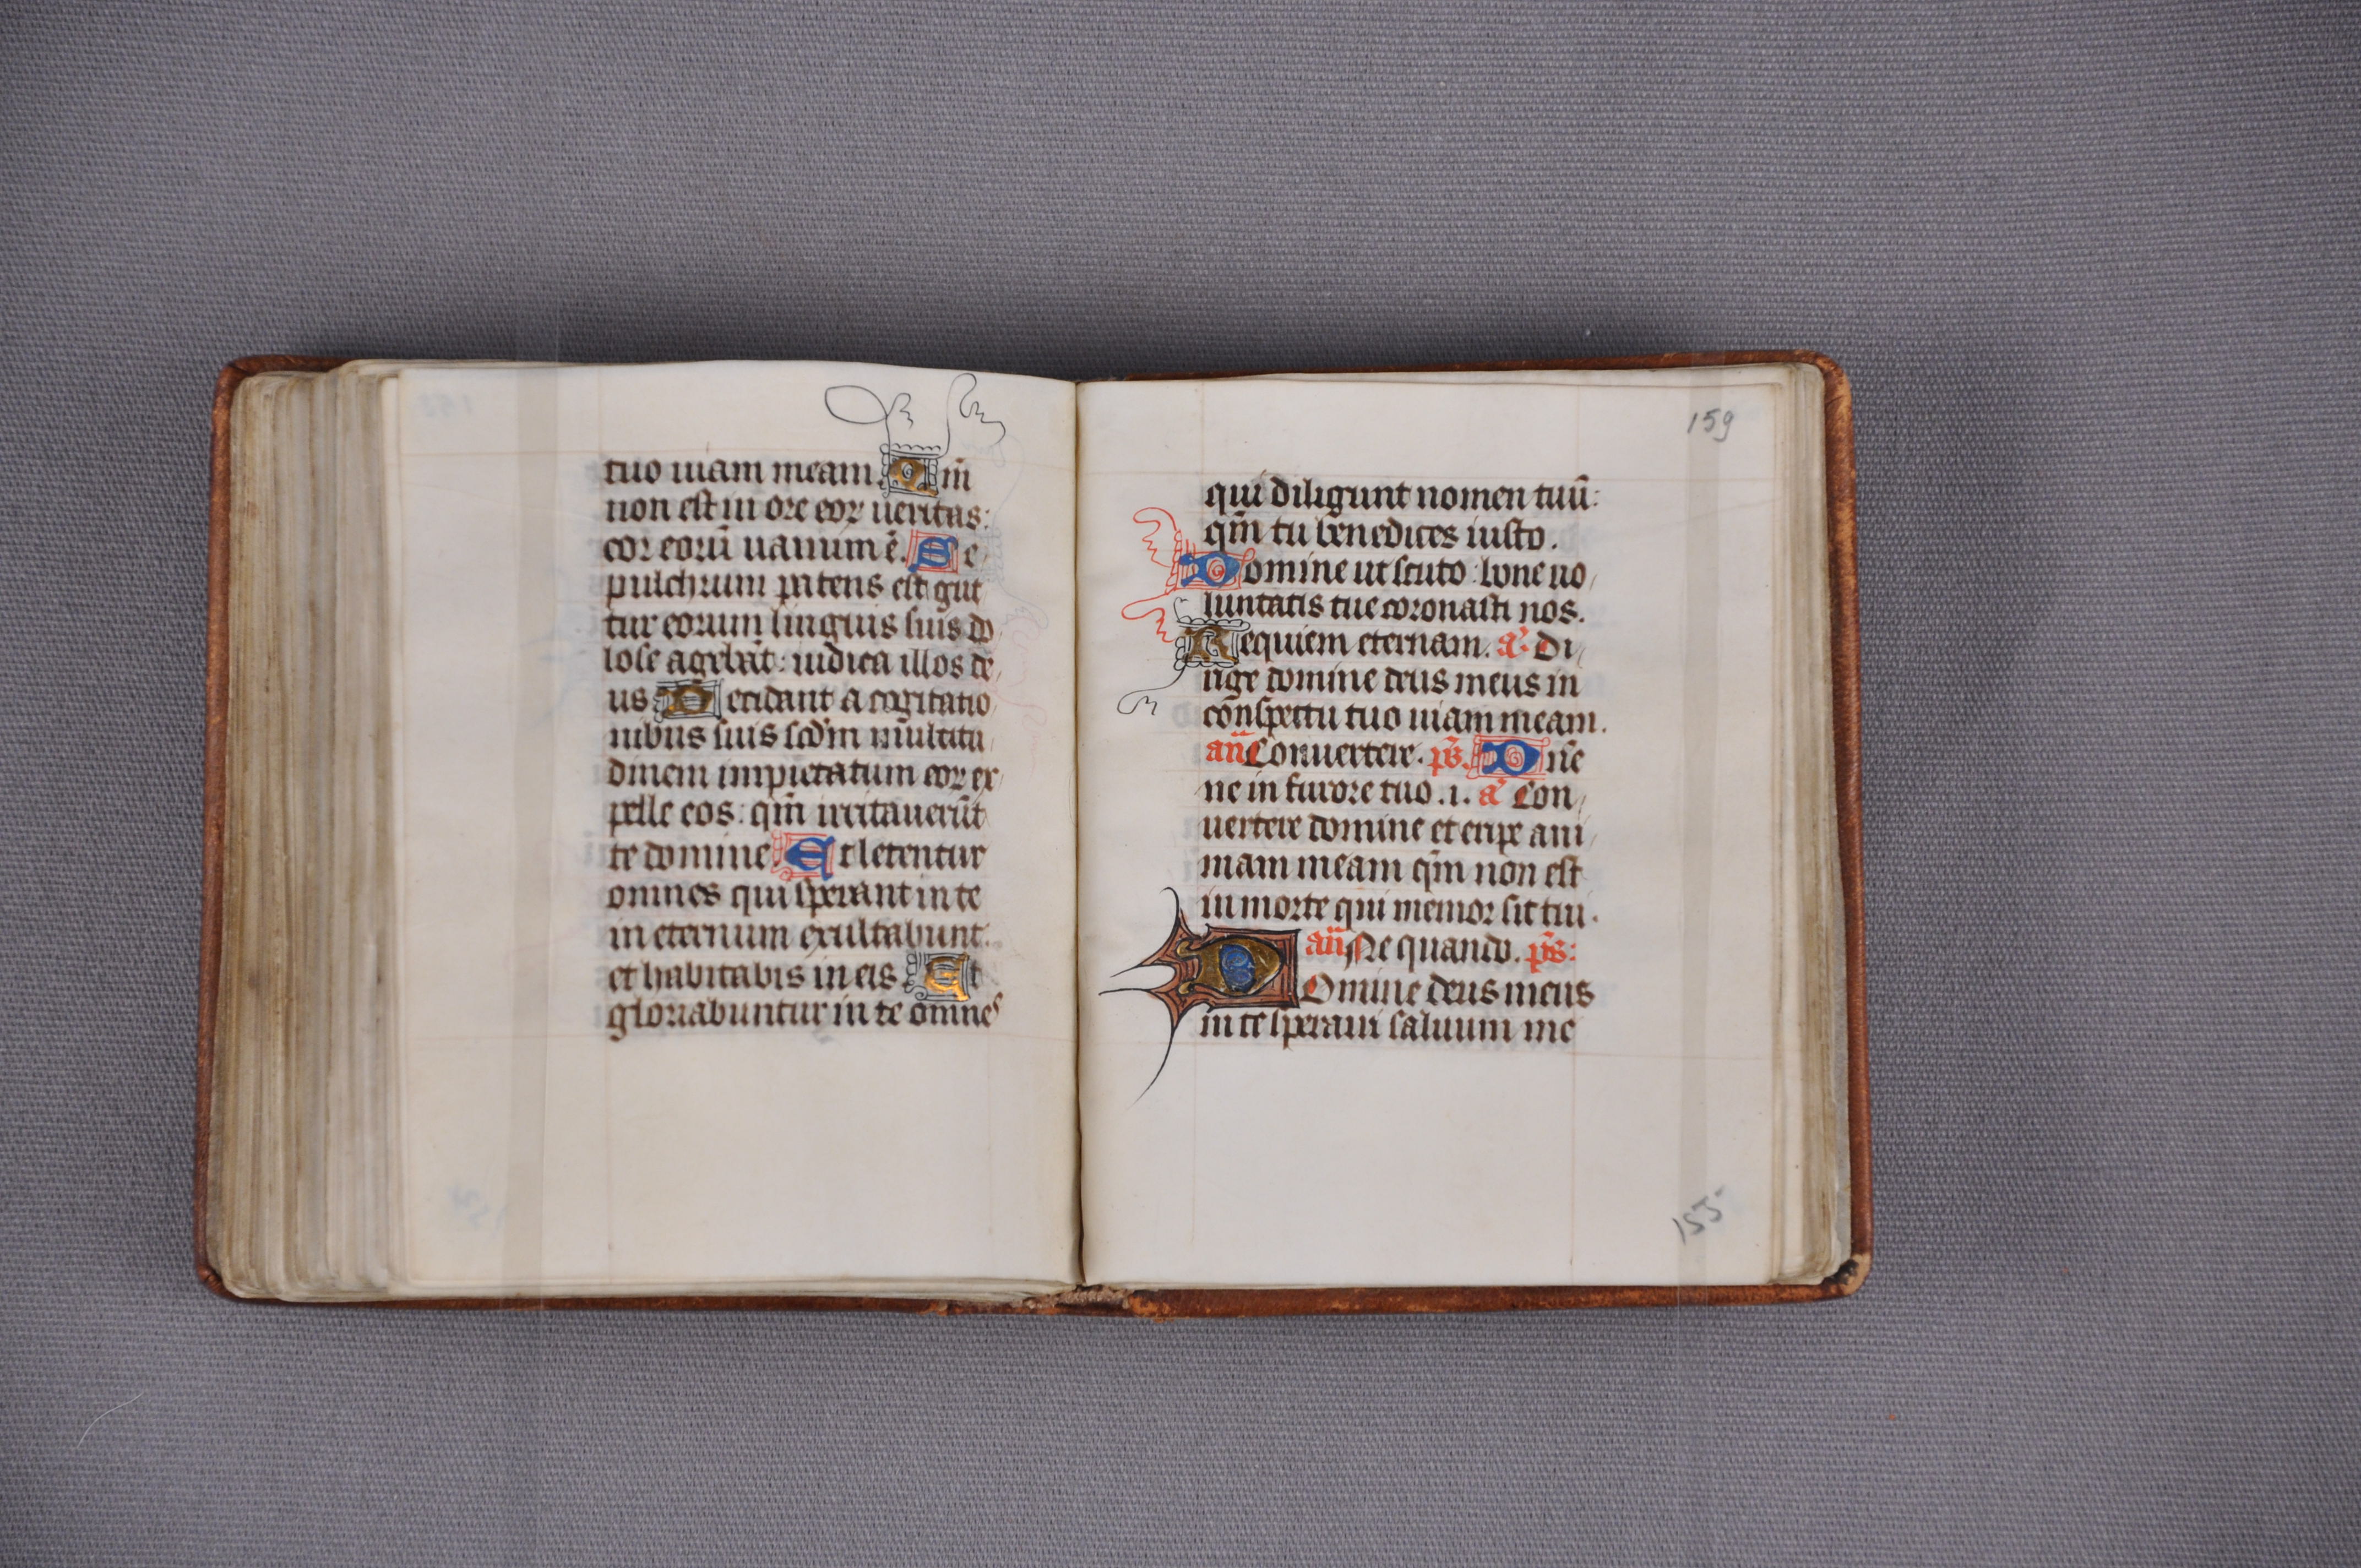 tuo uiam meam. Qm̄
non est in ore eoꝝ ueritas:
cor eorū uanum ē. Se
pulchrum patens est gut
tur eorum linguis suis do
lose agebāt: iudica illos de
us Decidant a cogitatio
nibus suis scd̄m multitu
dinem impietatum eoꝝ ex
pelle eos: qm̄ irritauerūt
te domine. Et letentur
omnes qui sperant in te
in eternum exultabunt:
et habitabis in eis. Et
gloriabuntur in te omnes
159
qui diligunt nomen tuū:
qm̄ tu benedices iusto.
Domine ut scuto: bone uo
luntatis tue coronasti nos.
Requiem eternam. a. Di
rige domine deus meus in
cōnspectu tuo uiam meam.
an̄ Conuertere. ps̄. Dn̄e
ne in furore tuo .i. a Con
uertere domine et eripe ani
mam meam qm̄ non est
in morte qui memor sit tui.
an̄ Ne quando. ps̄:
DOmine deus meus
in te speraui saluum me
155